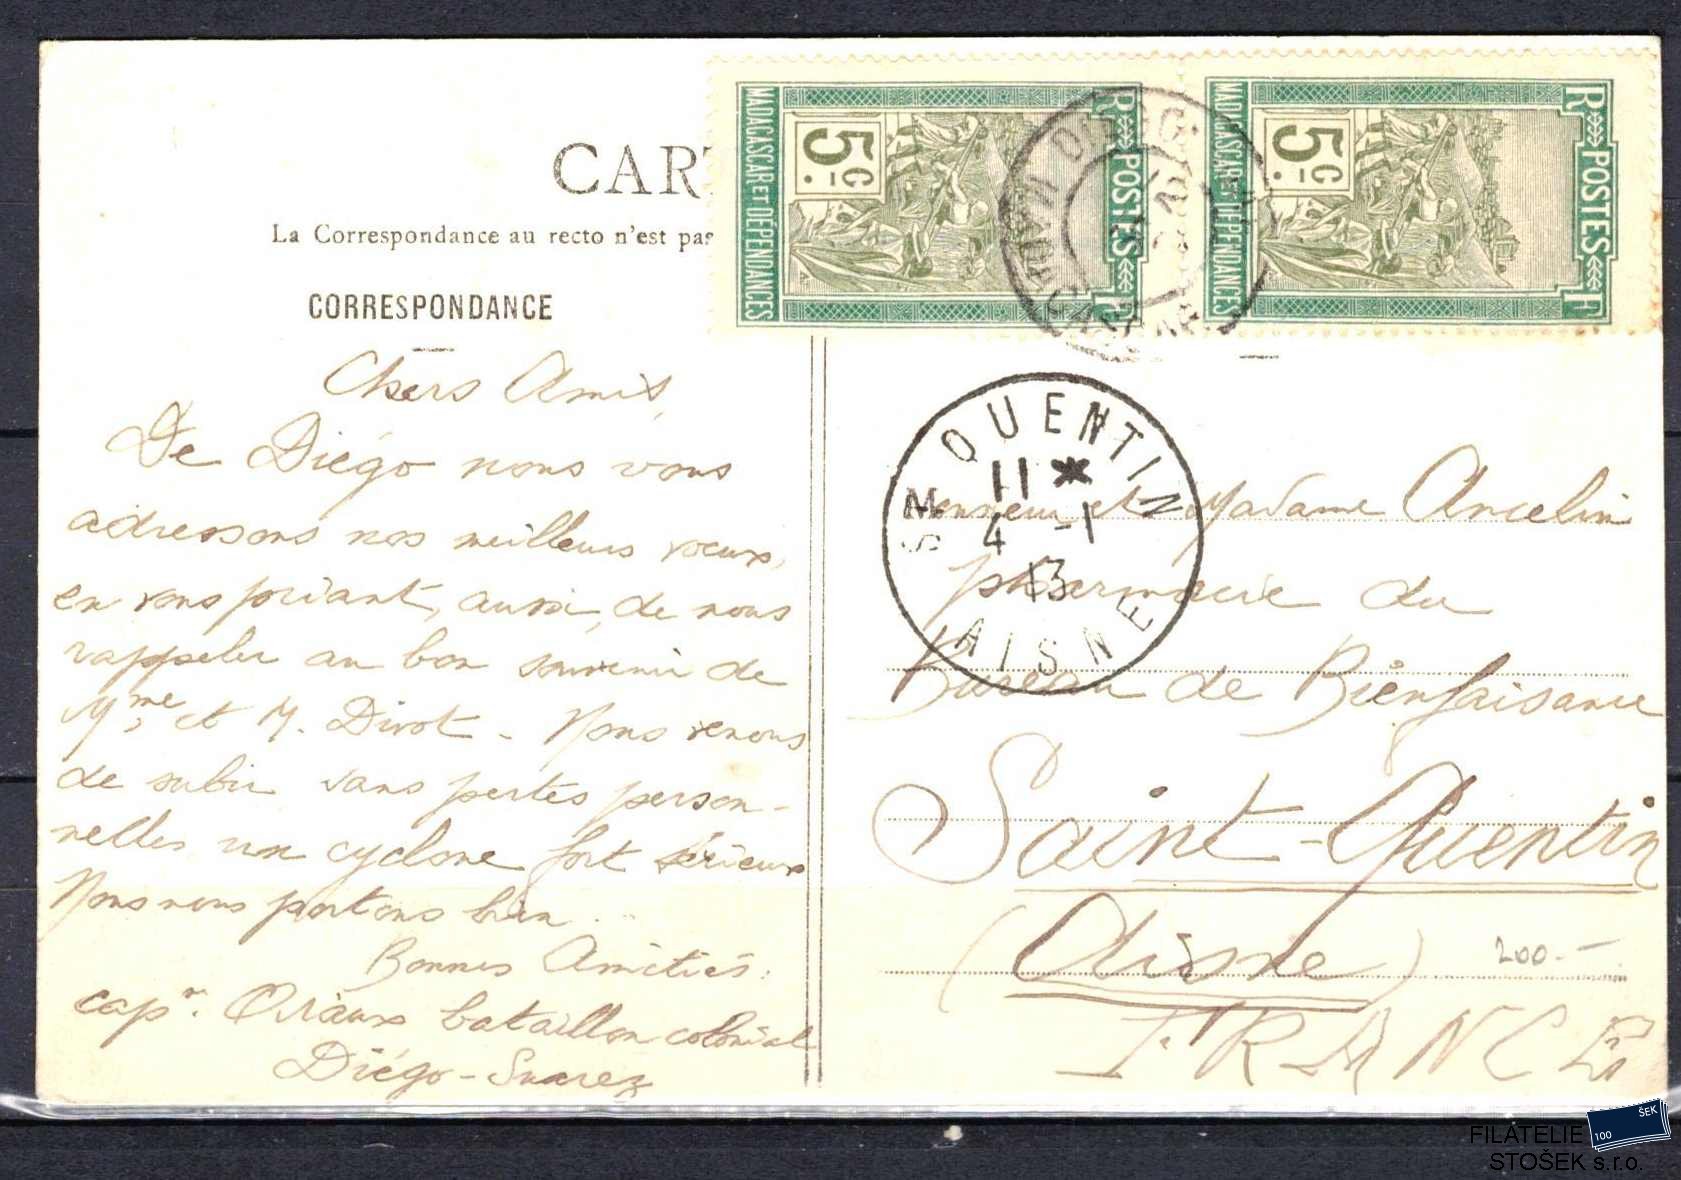 CART
La Correspondance au recto n'est pas
CORRESPONDANCE
Chers Amis,
De Diégo nous vous
adressons nos meilleurs voeux,
en vous priant, aussi, de nous
rappeler au bon souvenir de
Mme et M. Divot - Nous venons
de subir sans pertes person-
nelles un cyclone fort sérieux
Nous nous portons bien ..
Bonnes Amitiés.
capne. bataillon colonial
Diégo-Suarez
RF POSTES
5c.
MADAGASCAR ET DÉPENDANCES
RF POSTES
5c.
MADAGASCAR ET DÉPENDANCES
DIEGO
ST QUENTIN
11 *
4 -1
13
AISNE
Monsieur et Madame Ancelin
pharmacie du
Bureau de Bienfaisance
Saint-Quentin
(Aisne)
200.-
FRANCE
ŠEK
100
FILATELIE
STOŠEK s.r.o.